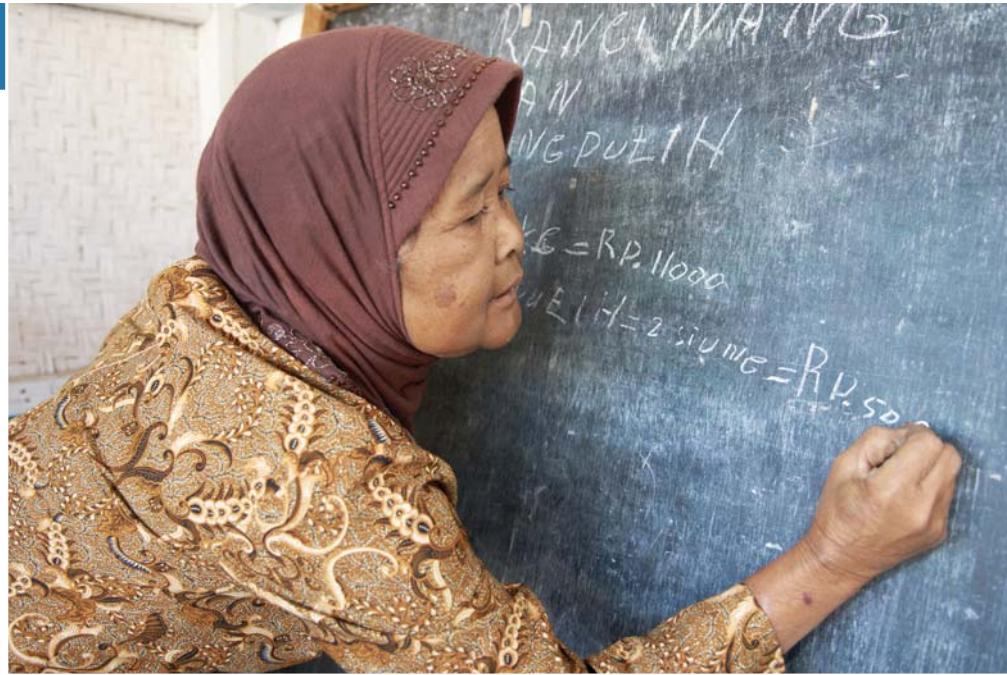 RANGINANG
AN
NGPUTIH
KG = RP. 11000
ELIH = 2 SIUNG = RP. 500